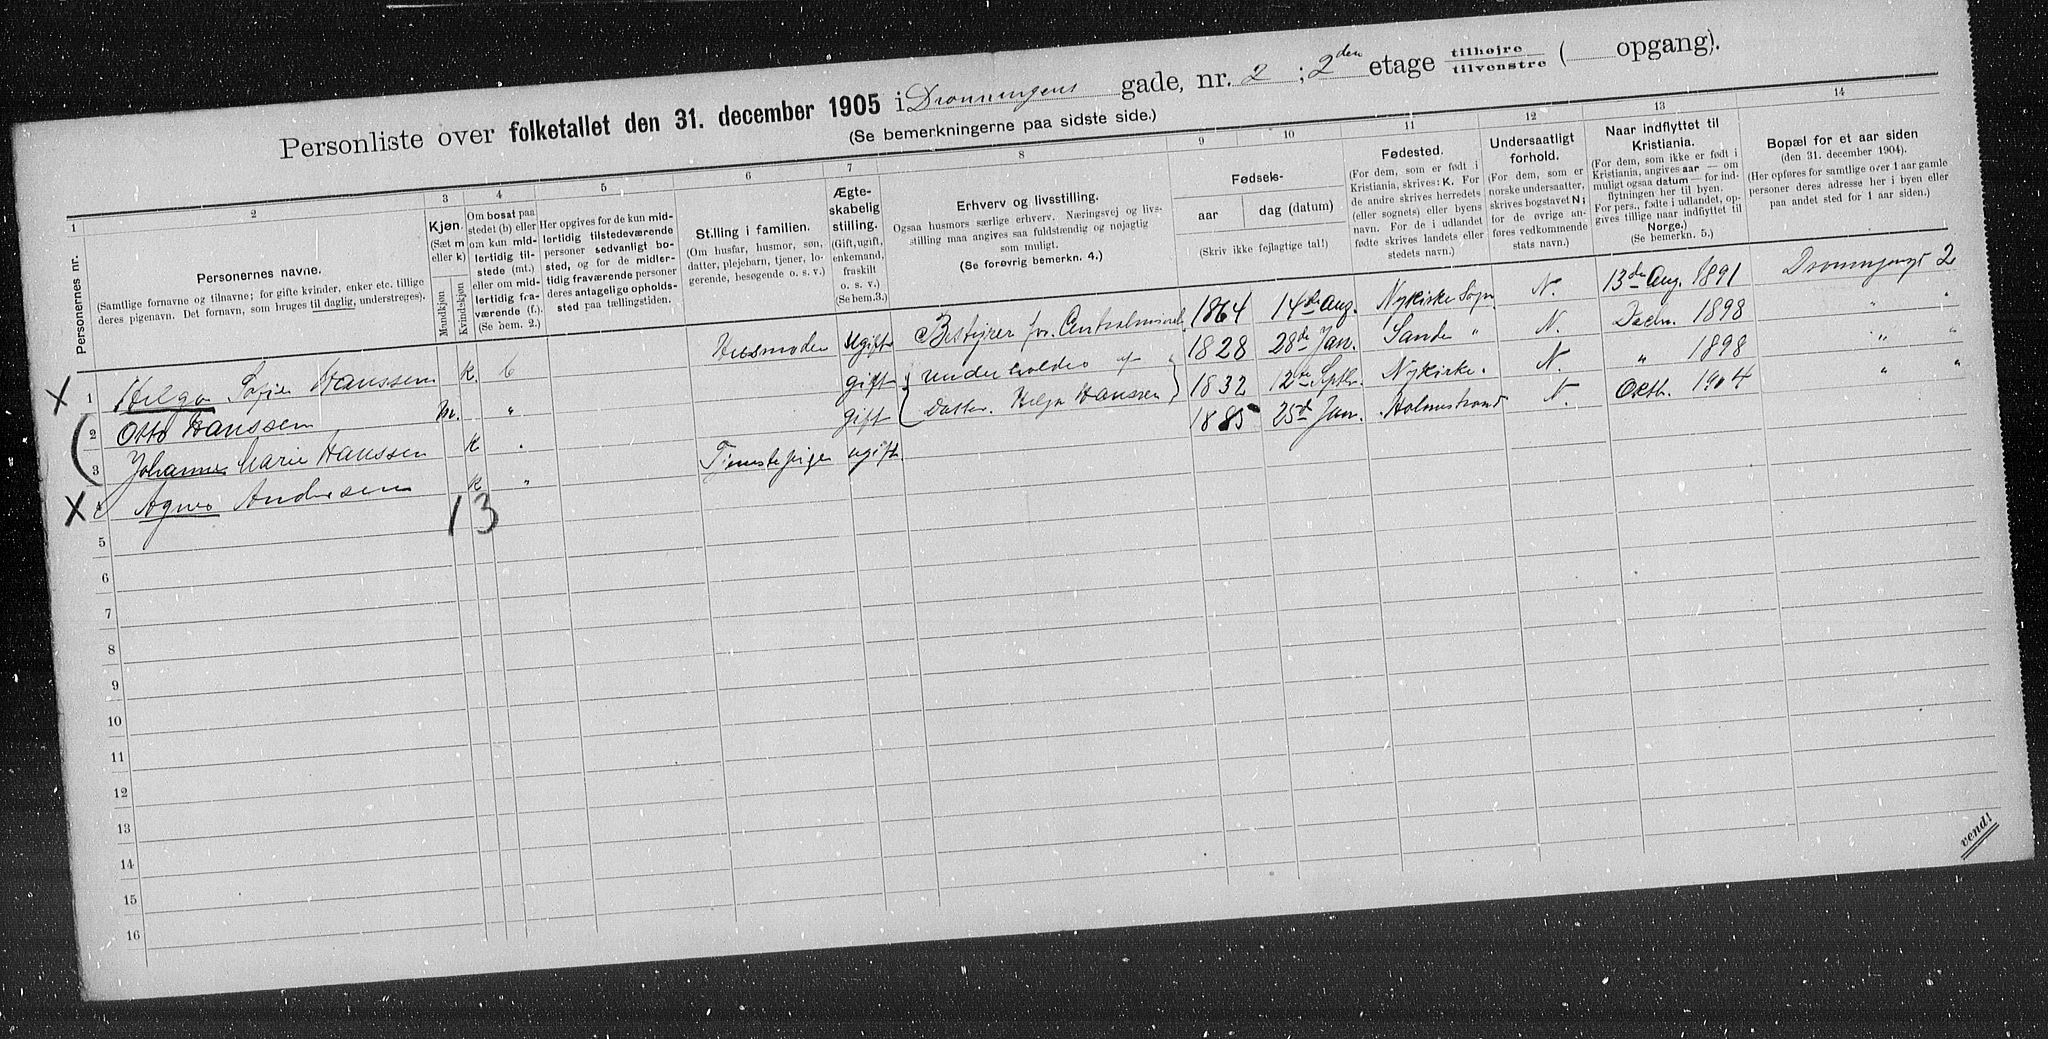 Personliste over folketallet den 31. december 1905 i Dronningens gade, nr. 2 ; 2den etage tilhøjre / tilvenstre ( opgang).
(Se bemerkningerne paa sidste side.)
1 2 3 4 5 6 7 8 9 10 11 12 13 14
Personernes nr.
Personernes navne.
(Samtlige fornavne og tilnavne; for gifte kvinder, enker etc. tillige
deres pigenavn. Det fornavn, som bruges til daglig, understreges).
Kjøn.
(Sæt m
eller k)
Mandkjøn
Kvindekjøn
Om bosat paa
stedet (b) eller
om kun mid-
lertidig til-
stede (mt.)
eller om mid-
lertidig fra-
værende (f.).
(Se bem. 2.)
Her opgives for de kun mid-
lertidig tilstedeværende
personer sedvanligt bo-
sted, og for de midler-
tidig fraværende personer
deres antagelige opholds-
sted paa tællingstiden.
Stilling i familien.
(Om husfar, husmor, søn,
datter, plejebarn, tjener, lo-
gerende, besøgende o. s. v.)
Ægte-
skabelig
stilling.
(Gift, ugift,
enkemand,
fraskilt
o. s. v.)
(Se bem.3.)
Erhverv og livsstilling.
Ogsaa husmors særlige erhverv. Næringsvej og livs-
stilling maa angives saa fuldstændig og nøjagtig
som muligt.
(Se forøvrig bemerkn. 4.)
Fødsels-
aar
dag (datum)
(Skriv ikke fejlagtige tal!)
Fødested.
(For dem, som er født i
Kristiania, skrives: K. For
de andre skrives herredets
(eller sognets) eller byens
navn. For de i udlandet
fødte skrives landets eller
stedets navn.)
Undersaatligt
forhold.
(For dem, som er
norske undersaatter,
skrives bogstavet N;
for de øvrige an-
føres vedkommende
stats navn.)
Naar indflyttet til
Kristiania.
(For dem, som ikke er født i
Kristiania, angives aar — om
muligt ogsaa datum — for ind-
flytningen her til byen.
For pers., fødte i udlandet, op-
gives tillige naar indflyttet til
Norge.)
(Se bemerkn. 5.)
Bopæl for et aar siden
(den 31. december 1904).
(Her opføres for samtlige over 1 aar gamle
personer deres adresse her i byen eller
paa andet sted for 1 aar siden.)
X 1 Helga Sofie Hanssen k. b Husmoder ugift Bestyrer for 1864 14de Aug. Nykirke Sogn N. 13de Aug. 1891 2
2 Otto Hanssen m. " gift underholdes af 1828 28de Jan. Sande " N. Decbr. 1898 " "
3 Johanne Marie Hanssen k " gift Datter. Helga Hanssen 1832 12te Septbr. Nykirke. N. " 1898 " "
X 4 Agnes Andresen k " Tjenestepige ugift. 1885 25de Jan. Holmestrand N Octbr. 1904 " "
1 3
5
6
7
8
9
10
11
12
13
14
15
16
vend!